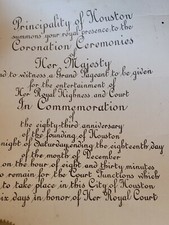 Principality of Houston
summons your royal presence to the
Coronation Ceremonies
of
Her Majesty
d to witness a Grand Pageant to be given
for the entertainment of
Her Royal Highness and Court
In Commemoration
of
the eighty-third anniversary
of the founding of Houston
night of Saturday, ending the eighteenth day
of the month of December
on the hour of eight and thirty minutes
o remain for the Court Functions which
to take place in this City of Houston
ix days in honor of Her Royal Court